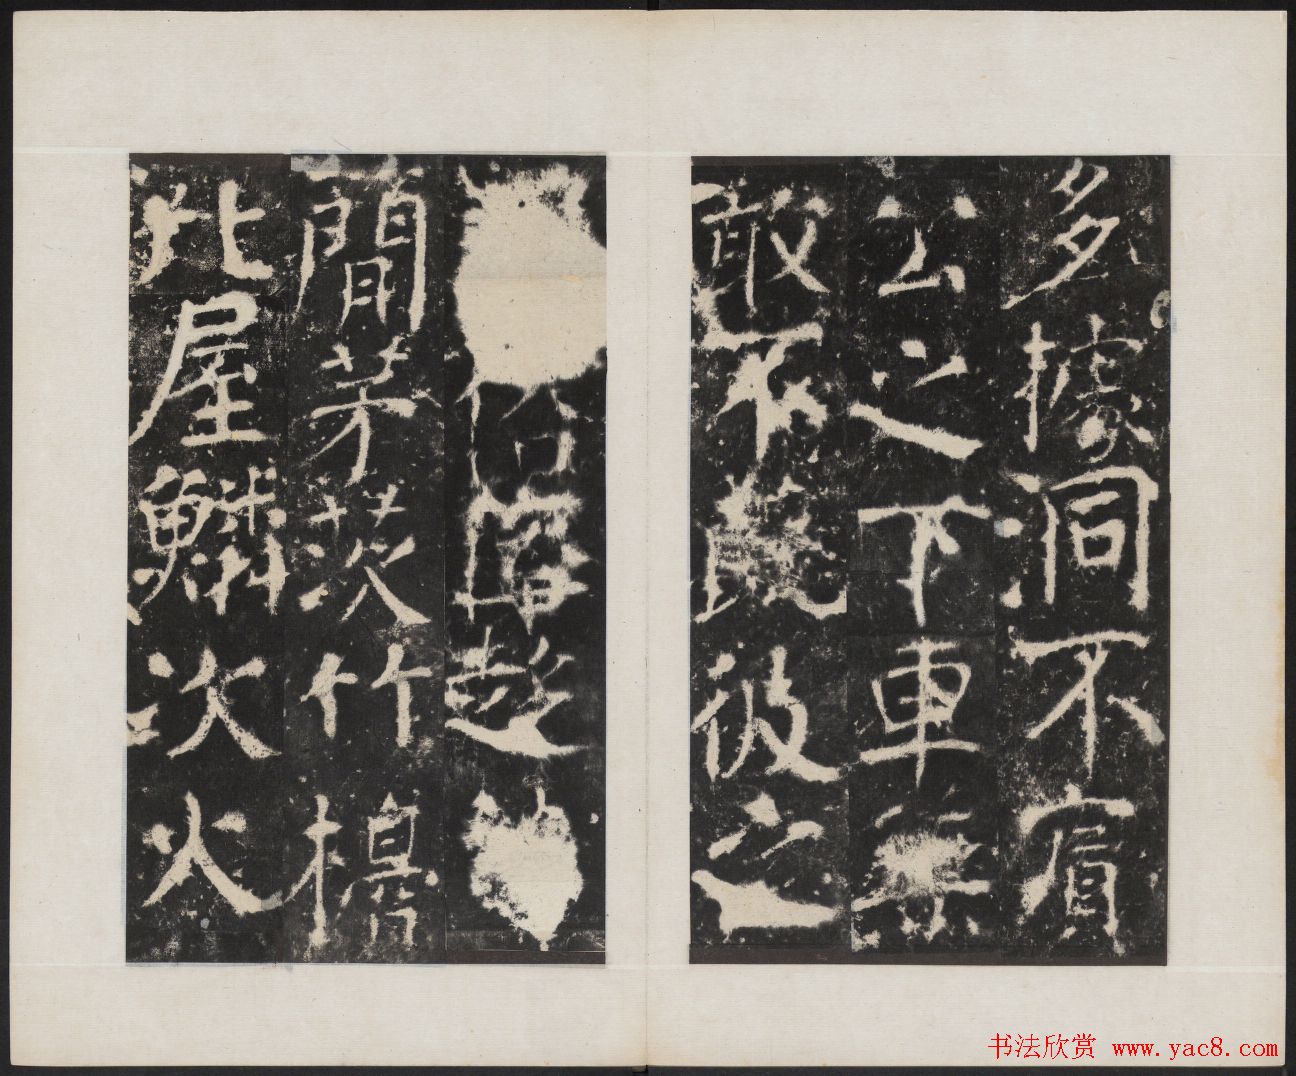 多據洞不賓
公之下車無
敢不彼之
趙
間茅茨竹
比屋鱗次火
书法欣赏 www.yac8.com